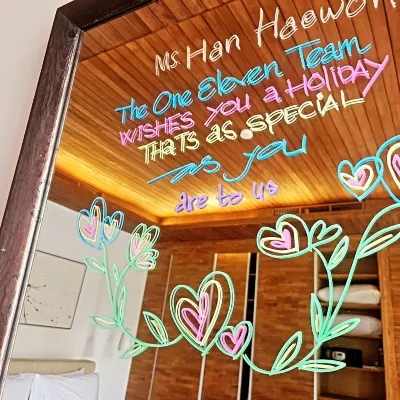 Ms. Han Haewon
The One Eleven Team
WISHES YOU a HOLIDAY
THATS as SPECIAL
as you
are to us